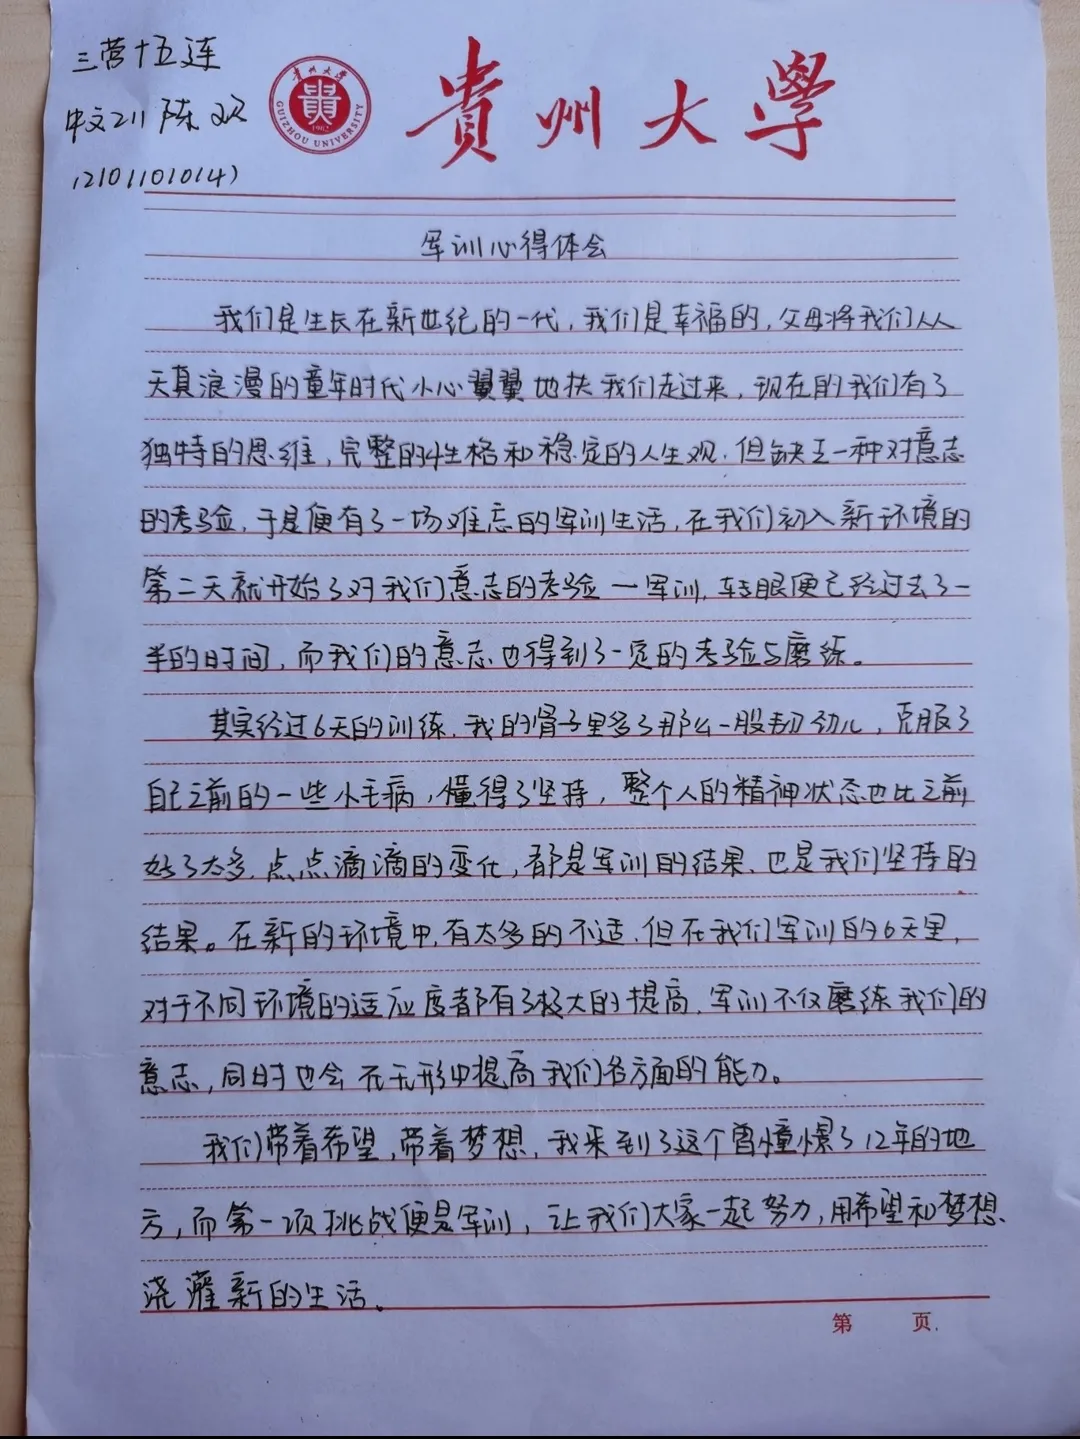 三营十五连
中文211 陈欢
(2101101014)
貴州大學
貴州大學
貴
1902
GUIZHOU UNIVERSITY
军训心得体会
我们是生长在新世纪的一代，我们是幸福的，父母将我们从
天真浪漫的童年时代小心翼翼地扶我们走过来，现在的我们有了
独特的思维，完整的性格和稳定的人生观，但缺乏一种对意志
的考验，于是便有了一场难忘的军训生活，在我们初入新环境的
第二天就开始了对我们意志的考验一军训，转眼便已经过去了一
半的时间，而我们的意志也得到了一定的考验与磨练。
其实经过6天的训练，我的骨子里多了那么一股韧劲儿，克服了
自己之前的一些小毛病，懂得了坚持，整个人的精神状态也比之前
好了太多，点点滴滴的变化，都是军训的结果，也是我们坚持的
结果。在新的环境中，有太多的不适，但在我们军训的6天里，
对于不同环境的适应度都有了极大的提高，军训不仅磨练我们的
意志，同时也会在无形中提高我们各方面的能力。
我们带着希望，带着梦想，我来到了这个曾憧憬了12年的地
方，而第一项挑战便是军训，让我们大家一起努力，用希望和梦想，
浇灌新的生活。
第 页.